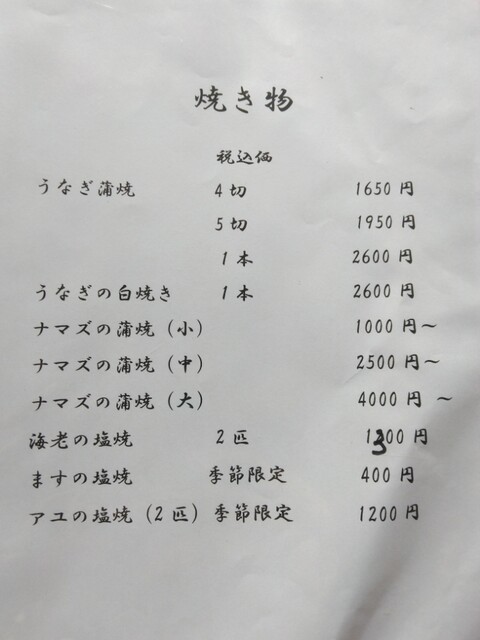 焼き物
税込価
うなぎ蒲焼 4切 1650円
5切 1950円
1本 2600円
うなぎの白焼き 1本 2600円
ナマズの蒲焼（小） 1000円～
ナマズの蒲焼（中） 2500円～
ナマズの蒲焼（大） 4000円 ～
海老の塩焼 2匹 1300円
ますの塩焼 季節限定 400円
アユの塩焼（2匹）季節限定 1200円